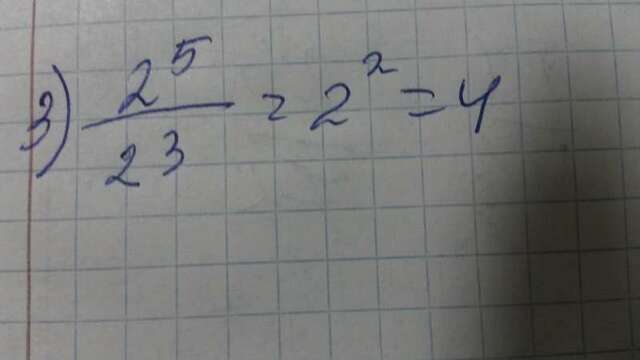 3) 2^5 / 2^3 = 2^2 = 4